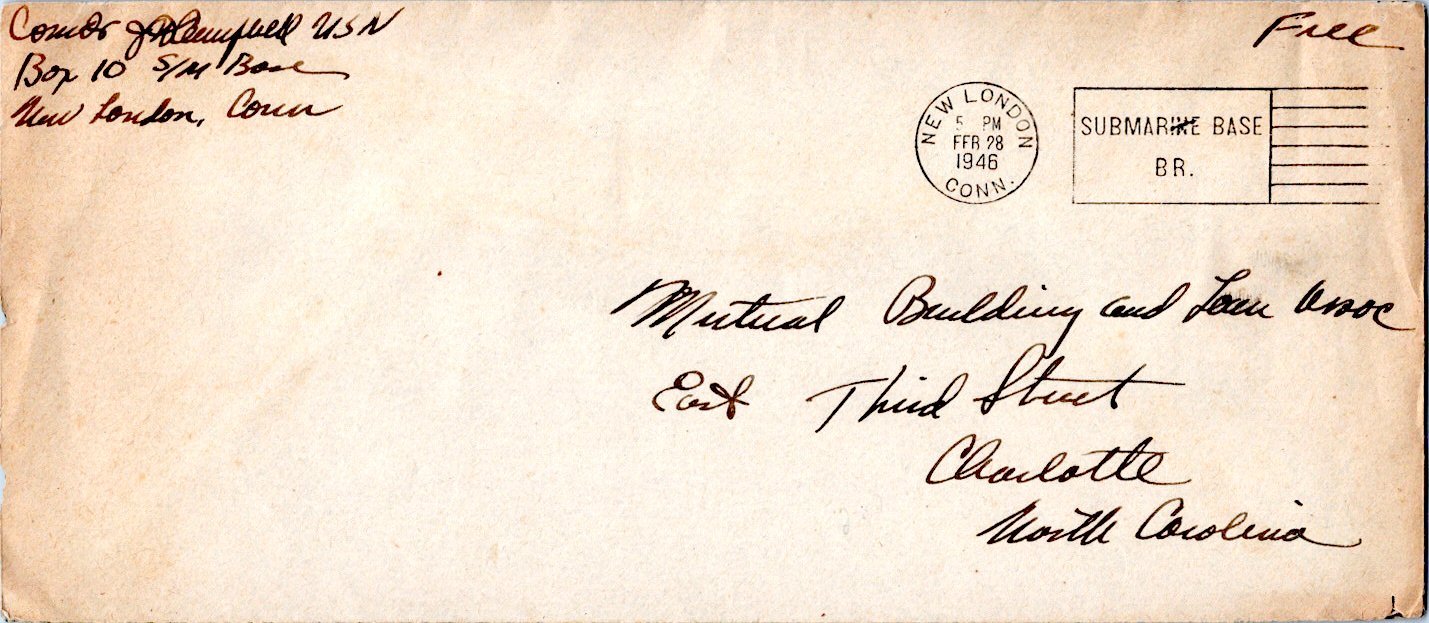 Comdr J R Campbell USN
Box 10 S/M Base
New London, Conn
Free
NEW LONDON
5 PM
FEB 28
1946
CONN.
SUBMARINE BASE
BR.
Mutual Building and Loan Assoc
East Third Street
Charlotte
North Carolina